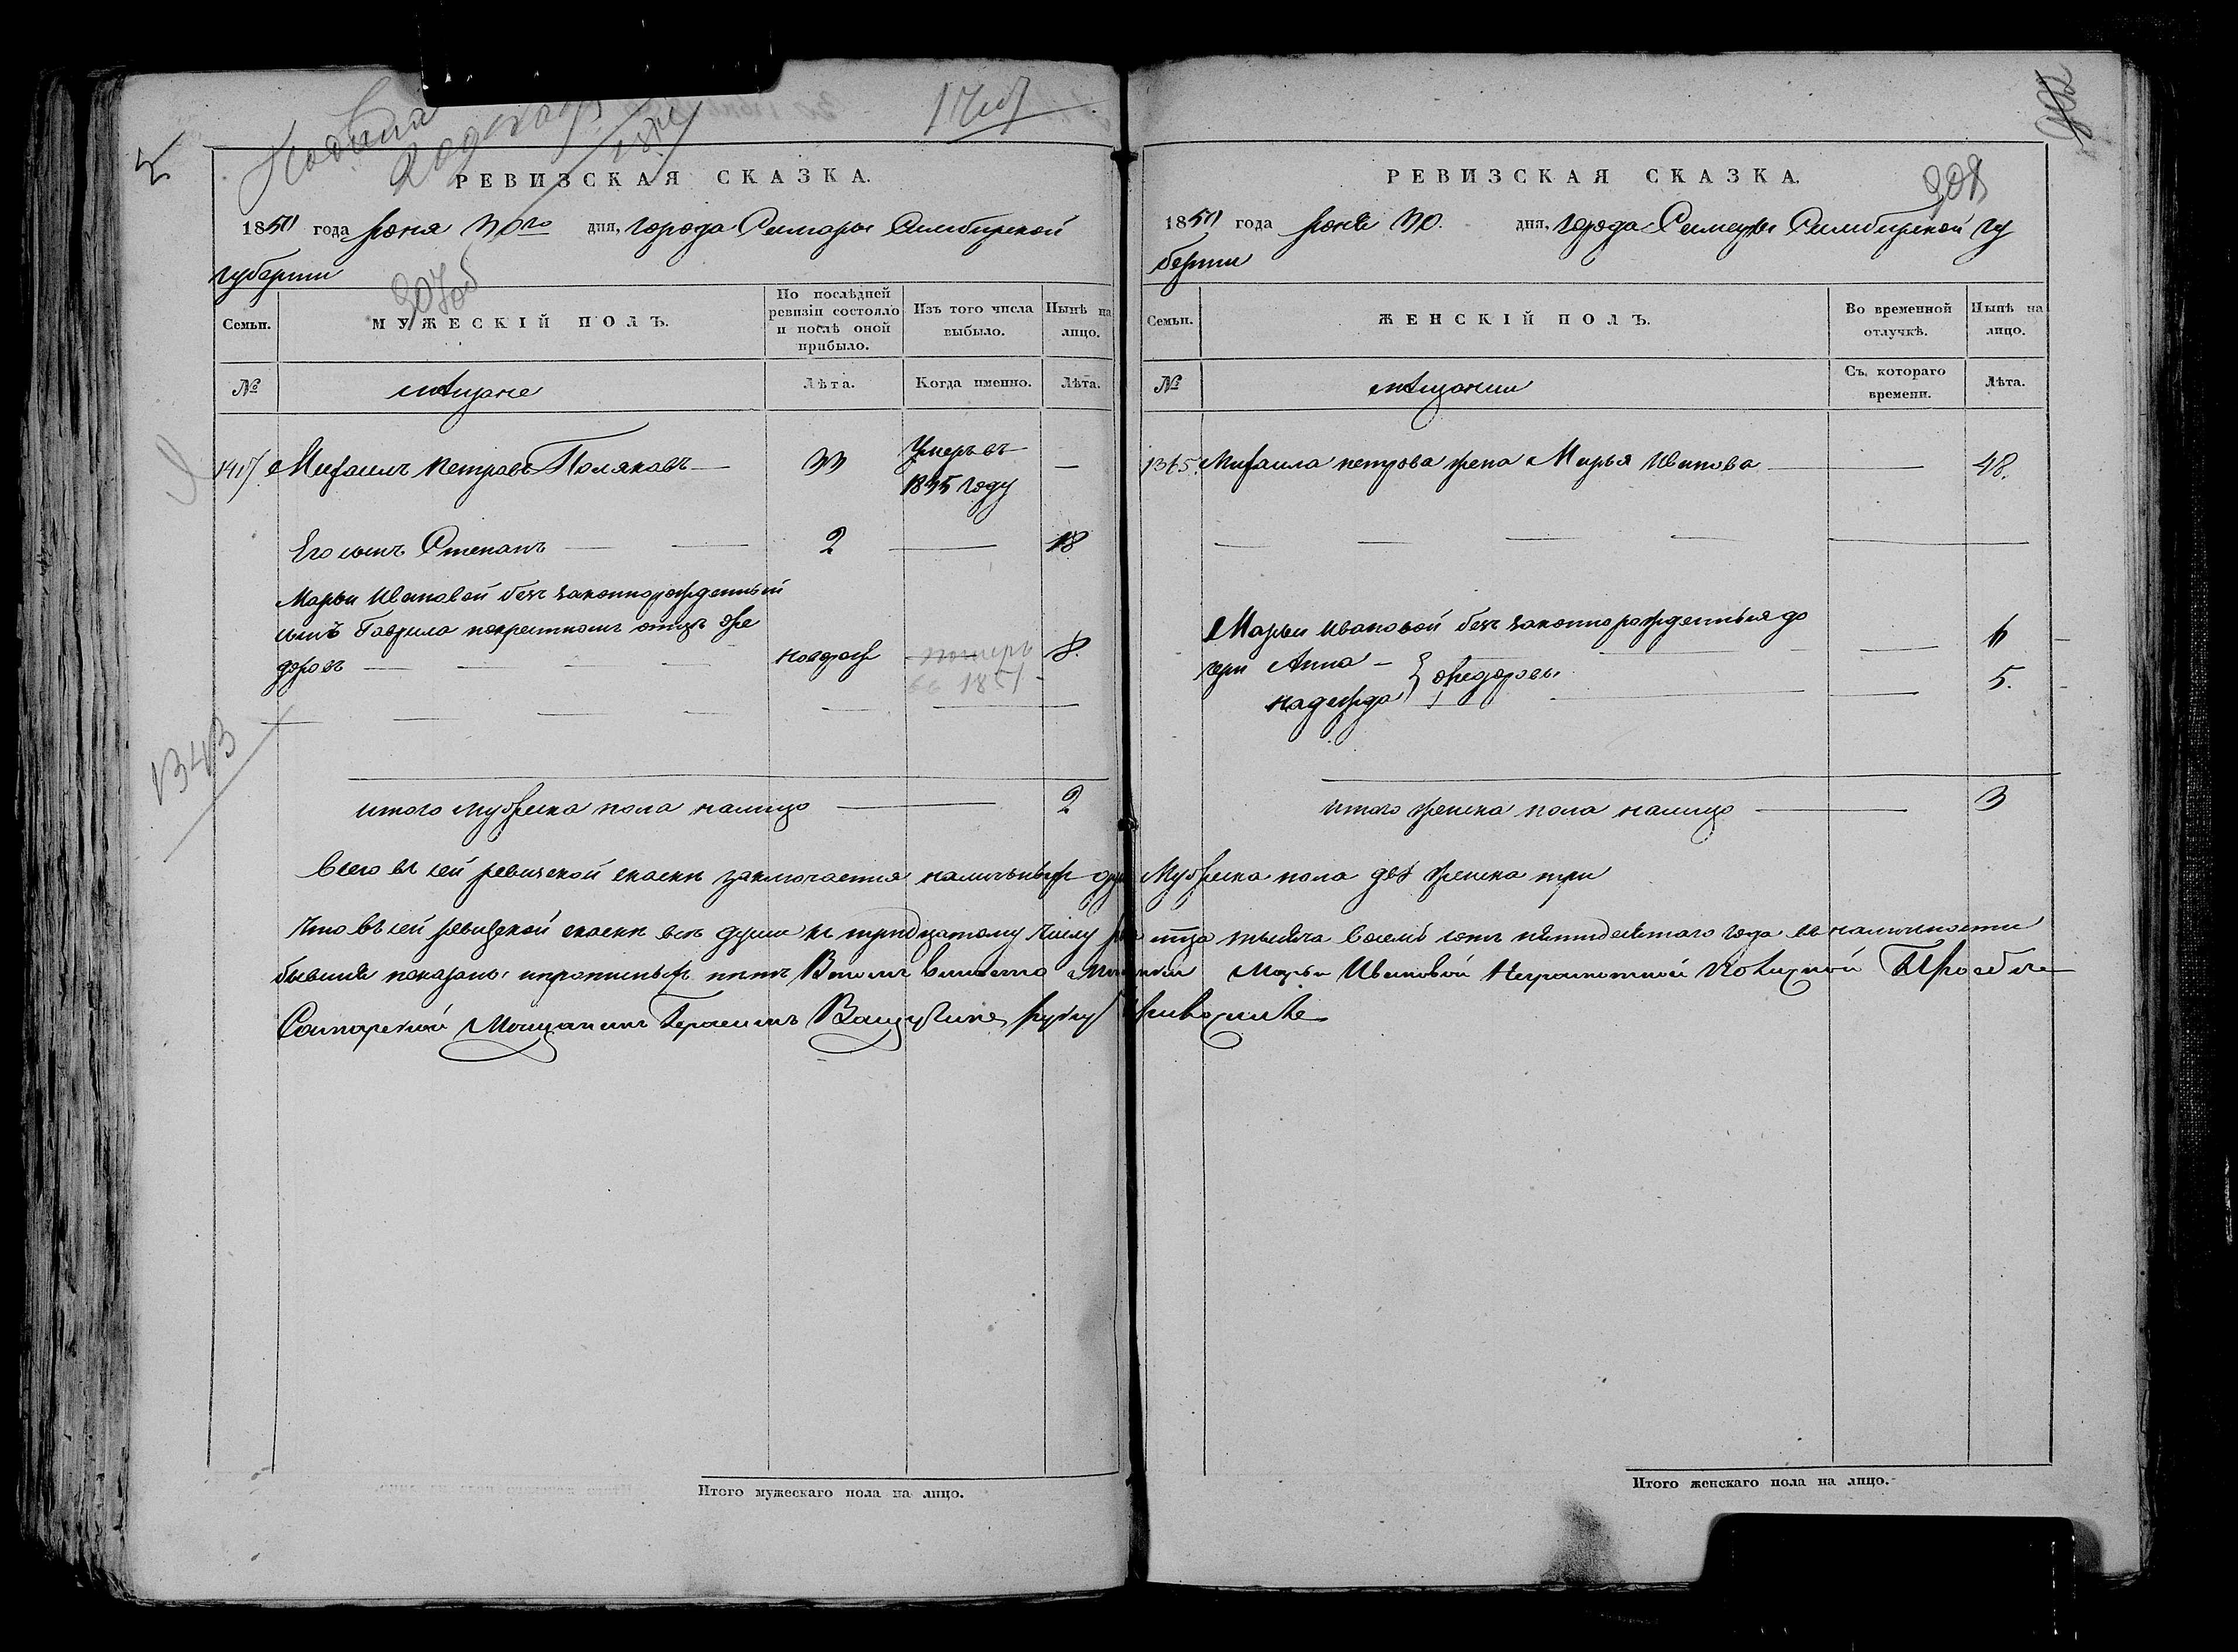 1417
РЕВИЗСКАЯ СКАЗКА.
1850 года Июня 30го дня, города Самары Симбирской
губернии
207об
Семьи.
МУЖЕСКІЙ ПОЛЪ.
По послѣдней ревизіи состояло и послѣ оной прибыло.
Изъ того числа выбыло.
Нынѣ на лицо.
№
мѣщане
Лѣта.
Когда именно.
Лѣта.
1417. Михаилъ Петровъ Поляковъ — 33 Умеръ въ 1835 году —
Его сынъ Степанъ — 2 — 18
Марьи Ивановой безъ законнорожденный
сынъ Гаврила покрестномъ отцъ Фе
доровъ — новорож померъ въ 1851 8.
1343
итого мужеска пола налицо — 2
РЕВИЗСКАЯ СКАЗКА.
208
1850 года Июня 30. дня, города Самары Симбирской гу
берніи
Семьи.
ЖЕНСКІЙ ПОЛЪ.
Во временной отлучкѣ.
Нынѣ на лицо.
№
мѣщанки
Съ котораго времени.
Лѣта.
1365. Михаила петрова жена Марья Иванова — 48.
Марьи Ивановой безъ законнорожденныя до
чери Анна — 6
Надежда } Федоровы 5.
итого женска пола налицо — 3
Всего въ сей ревизской скаски заключается наличныхъ душ Мужеска пола двѣ женска три
Что въ сей ревизской скаски всѣ души къ тридцатому числу тысяча восемь сотъ пятидесятаго года въ наличности
бывшія показаны, и прописныхъ нѣтъ Марьи Ивановой Неграмотной Прозбѣ
Самарской Мещанинъ Герасимъ руку приложилъ
Итого мужескаго пола на лицо.
Итого женскаго пола на лицо.